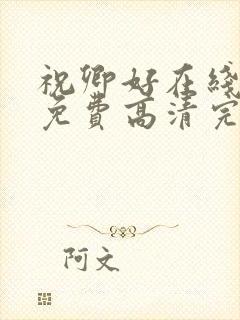 祝卿好在线
免费高清完
阿文